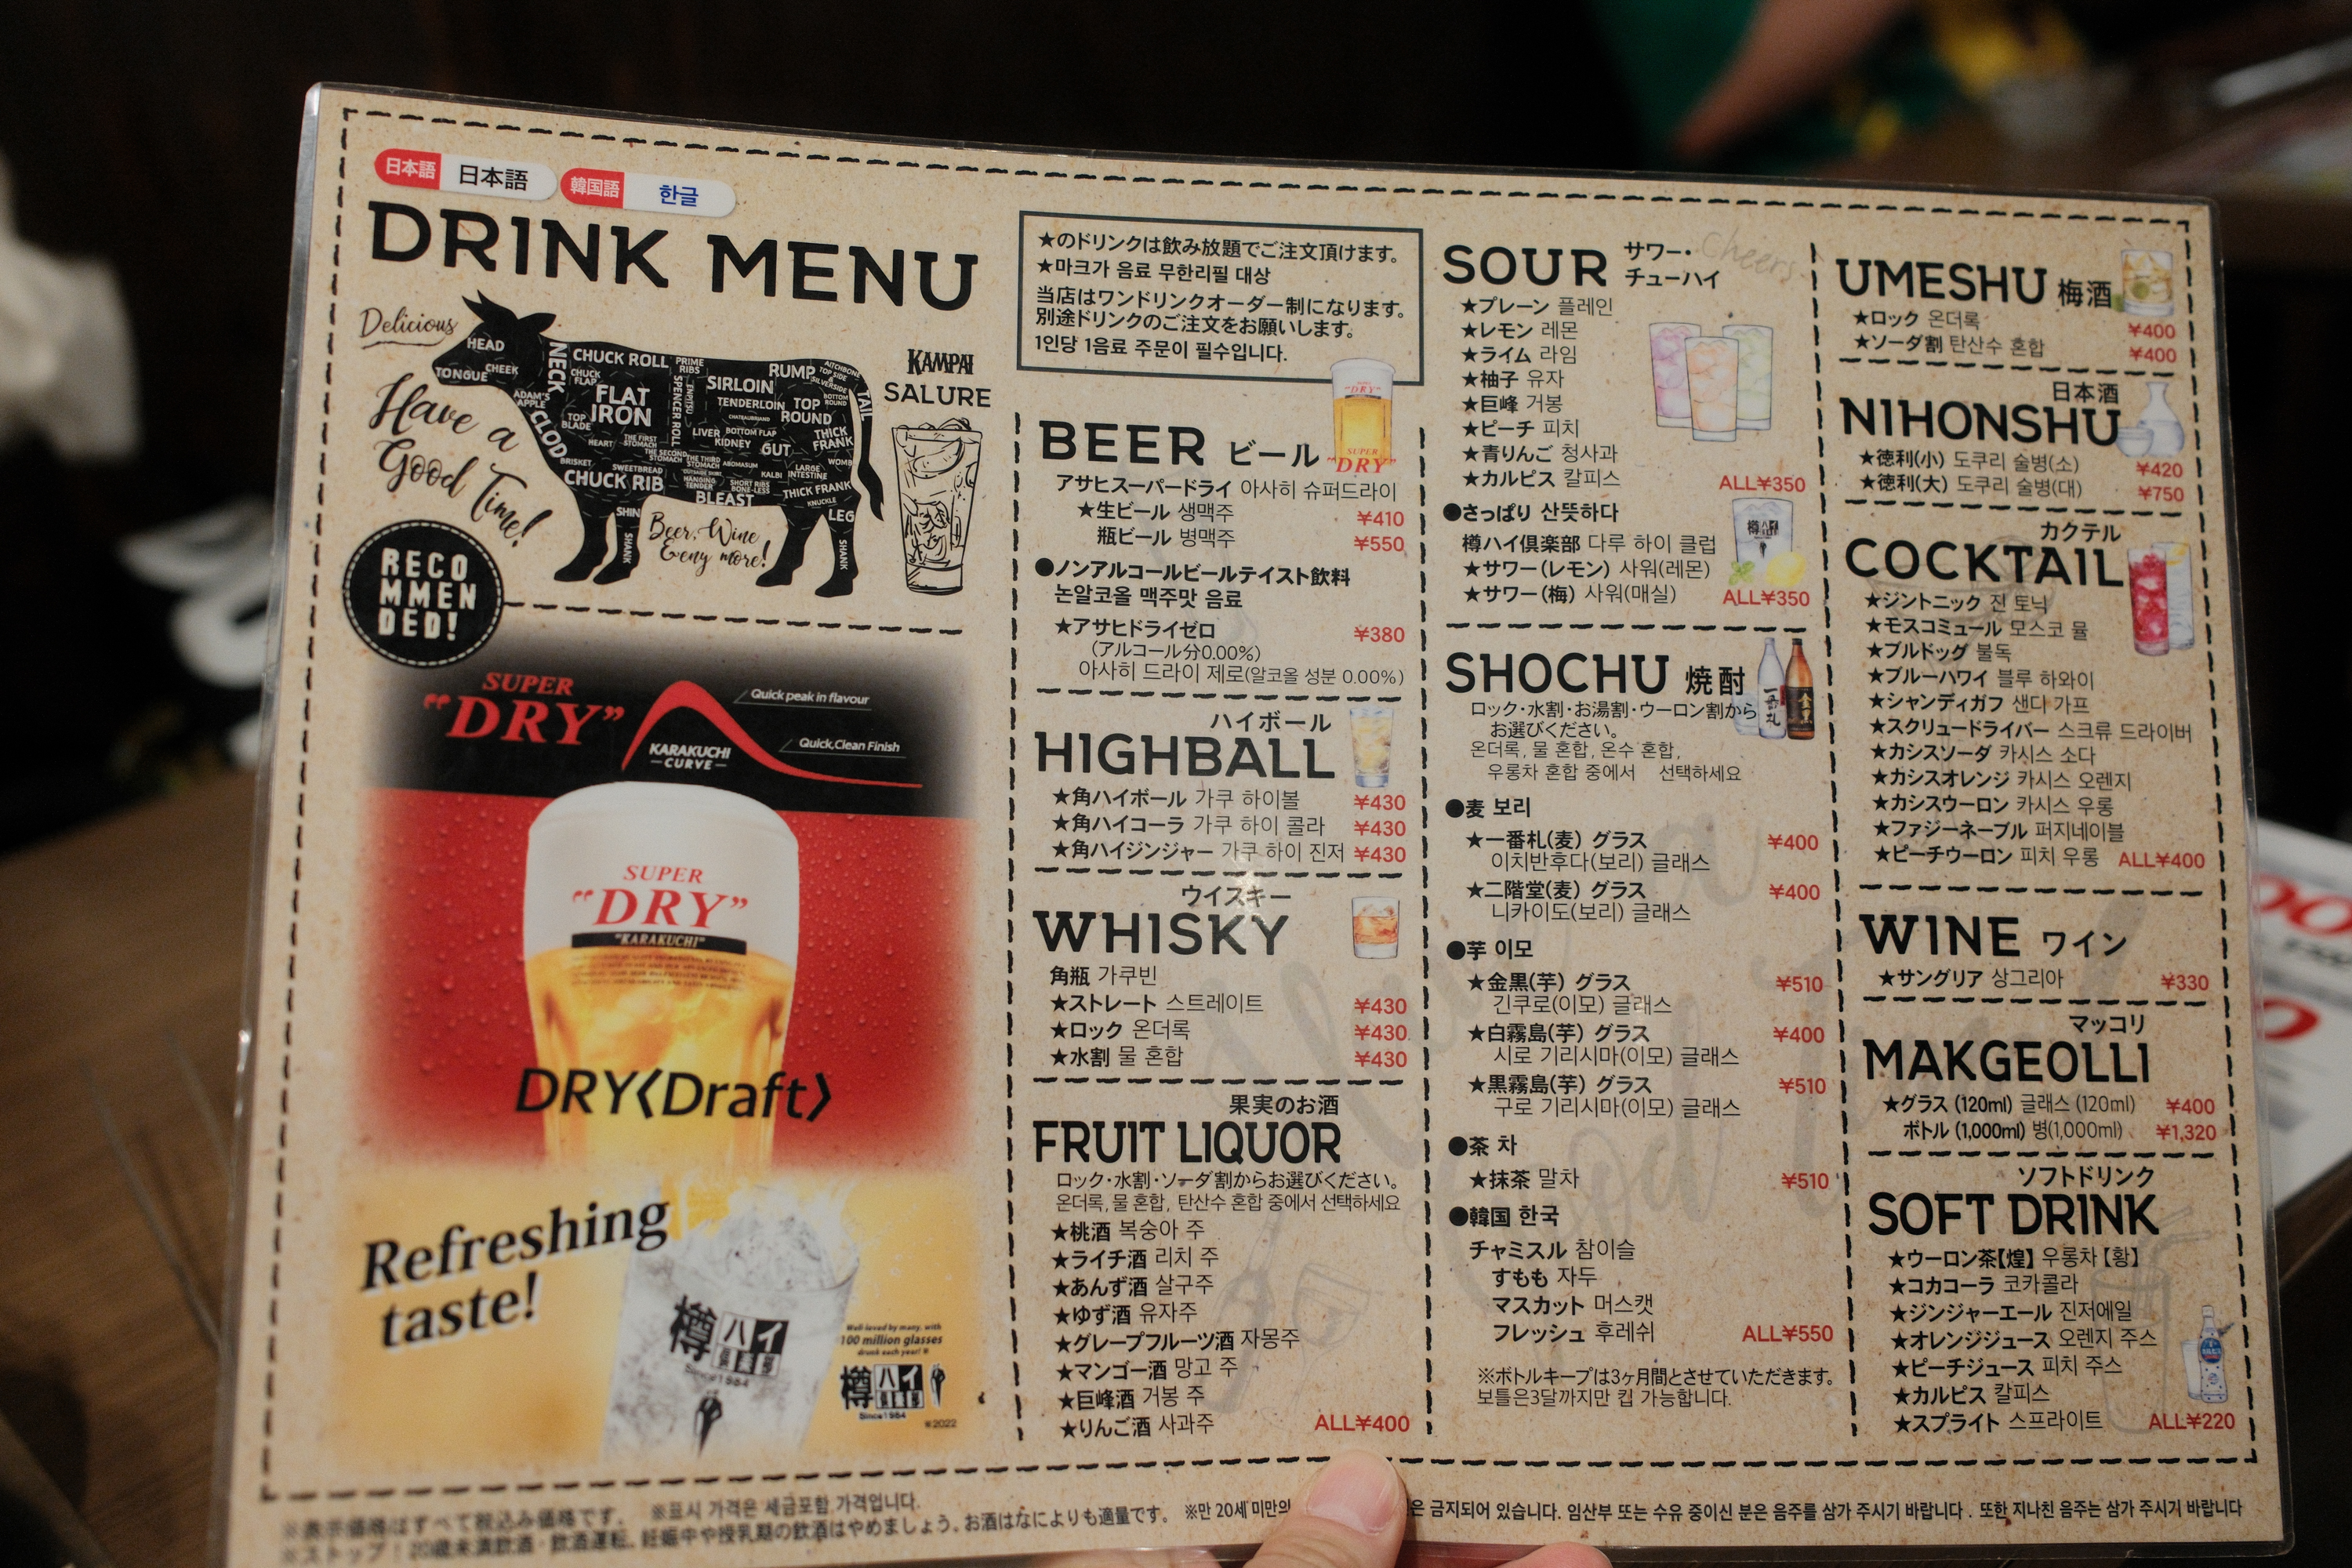 日本語 日本語 韓国語 한글
DRINK MENU
Delicious
Have a
Good Time!
HEAD
CHEEK
TONGUE
NECK
ADAM'S
APPLE
CLOD
CHUCK ROLL
CHUCK
FLAP
FLAT
IRON
TOP
BLADE
PRIME
RIBS
SPENCER ROLL
SIRLOIN
TENDERLOIN
CHATEAUBRIAND
RUMP
TOP
ROUND
AITCHBONE
TOP SIDE
SILVERSIDE
BOTTOM
ROUND
TAIL
HEART
THE FIRST
STOMACH
LIVER
BOTTOM FLAP
KIDNEY
GUT
THICK
FRANK
WOMB
BRISKET
SWEETBREAD
THE SECOND
STOMACH
THE THIRD
STOMACH
ABOMASUM
KALBI
LARGE
INTESTINE
CHUCK RIB
HANGING
TENDER
SHORT RIBS
BONE-LESS
THICK FRANK
KNUCKLE
BLEAST
SHIN
SHANK
LEG
SHANK
Beer, Wine
&eny more!
KAMPAI
SALURE
RECO
MMEN
DED!
SUPER
"DRY"
Quick peak in flavour
KARAKUCHI
CURVE
Quick,Clean Finish
SUPER
"DRY"
"KARAKUCHI"
DRY〈Draft〉
Refreshing
taste!
樽ハイ
倶楽部
Since1984
Well-loved by many, with
100 million glasses
drunk each year!※
樽ハイ
倶楽部
Since1984
※2022
★のドリンクは飲み放題でご注文頂けます。
★마크가 음료 무한리필 대상
当店はワンドリンクオーダー制になります。
別途ドリンクのご注文をお願いします。
1인당 1음료 주문이 필수입니다.
BEER ビール
SUPER
"DRY"
SUPER
"DRY"
アサヒスーパードライ 아사히 슈퍼드라이
★生ビール 생맥주 ¥410
瓶ビール 병맥주 ¥550
●ノンアルコールビールテイスト飲料
논알코올 맥주맛 음료
★アサヒドライゼロ ¥380
(アルコール分0.00%)
아사히 드라이 제로(알코올 성분 0.00%)
ハイボール
HIGHBALL
★角ハイボール 가쿠 하이볼 ¥430
★角ハイコーラ 가쿠 하이 콜라 ¥430
★角ハイジンジャー 가쿠 하이 진저 ¥430
ウイスキー
WHISKY
角瓶 가쿠빈
★ストレート 스트레이트 ¥430
★ロック 온더록 ¥430
★水割 물 혼합 ¥430
果実のお酒
FRUIT LIQUOR
ロック・水割・ソーダ割からお選びください。
온더록, 물 혼합, 탄산수 혼합 중에서 선택하세요
★桃酒 복숭아 주
★ライチ酒 리치 주
★あんず酒 살구주
★ゆず酒 유자주
★グレープフルーツ酒 자몽주
★マンゴー酒 망고 주
★巨峰酒 거봉 주
★りんご酒 사과주 ALL¥400
SOUR サワー・
チューハイ
Cheers
★プレーン 플레인
★レモン 레몬
★ライム 라임
★柚子 유자
★巨峰 거봉
★ピーチ 피치
★青りんご 청사과
★カルピス 칼피스 ALL¥350
●さっぱり 산뜻하다
樽ハイ倶楽部 다루 하이 클럽
★サワー(レモン) 사워(레몬)
★サワー(梅) 사워(매실) ALL¥350
SHOCHU 焼酎
ロック・水割・お湯割・ウーロン割から
お選びください。
온더록, 물 혼합, 온수 혼합,
우롱차 혼합 중에서 선택하세요
●麦 보리
★一番札(麦) グラス ¥400
이치반후다(보리) 글래스
★二階堂(麦) グラス ¥400
니카이도(보리) 글래스
●芋 이모
★金黒(芋) グラス ¥510
긴쿠로(이모) 글래스
★白霧島(芋) グラス ¥400
시로 기리시마(이모) 글래스
★黒霧島(芋) グラス ¥510
구로 기리시마(이모) 글래스
●茶 차
★抹茶 말차 ¥510
●韓国 한국
チャミスル 참이슬
すもも 자두
マスカット 머스캣
フレッシュ 후레쉬 ALL¥550
※ボトルキープは3ヶ月間とさせていただきます。
보틀은3달까지만 킵 가능합니다.
UMESHU 梅酒
★ロック 온더록 ¥400
★ソーダ割 탄산수 혼합 ¥400
日本酒
NIHONSHU
★徳利(小) 도쿠리 술병(소) ¥420
★徳利(大) 도쿠리 술병(대) ¥750
カクテル
COCKTAIL
★ジントニック 진 토닉
★モスコミュール 모스코 뮬
★ブルドッグ 불독
★ブルーハワイ 블루 하와이
★シャンディガフ 샌디 가프
★スクリュードライバー 스크류 드라이버
★カシスソーダ 카시스 소다
★カシスオレンジ 카시스 오렌지
★カシスウーロン 카시스 우롱
★ファジーネーブル 퍼지네이블
★ピーチウーロン 피치 우롱 ALL¥400
WINE ワイン
★サングリア 상그리아 ¥330
マッコリ
MAKGEOLLI
★グラス (120ml) 글래스 (120ml) ¥400
ボトル (1,000ml) 병(1,000ml) ¥1,320
ソフトドリンク
SOFT DRINK
★ウーロン茶【煌】 우롱차【황】
★コカコーラ 코카콜라
★ジンジャーエール 진저에일
★オレンジジュース 오렌지 주스
★ピーチジュース 피치 주스
★カルピス 칼피스
★スプライト 스프라이트 ALL¥220
※表示価格はすべて税込み価格です。 ※표시 가격은 세금포함 가격입니다.
※ストップ!20歳未満飲酒・飲酒運転。妊娠中や授乳期の飲酒はやめましょう。お酒はなによりも適量です。 ※만 20세 미만의 은 금지되어 있습니다. 임산부 또는 수유 중이신 분은 음주를 삼가 주시기 바랍니다. 또한 지나친 음주는 삼가 주시기 바랍니다